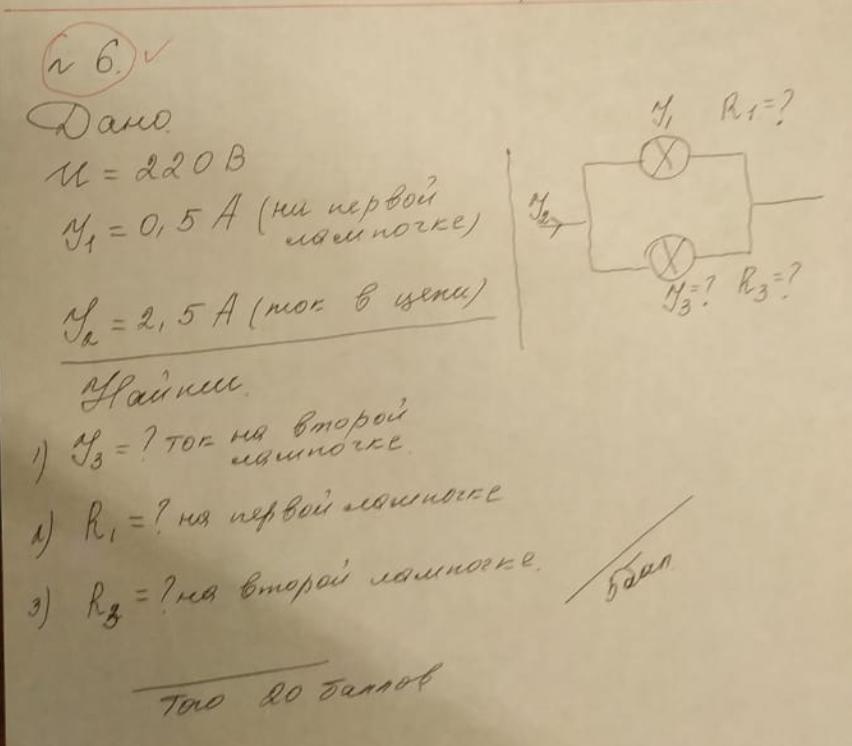 № 6.
Дано.
U = 220 В
J1 = 0,5 А (на первой
лампочке)
J2 = 2,5 А (ток в цепи)
J1 R1=?
J2
J3=? R3=?
Найти.
1) J3 = ? ток на второй
лампочке.
2) R1 = ? на первой лампочке
3) R3 = ? на второй лампочке.
5 бал.
того 20 баллов